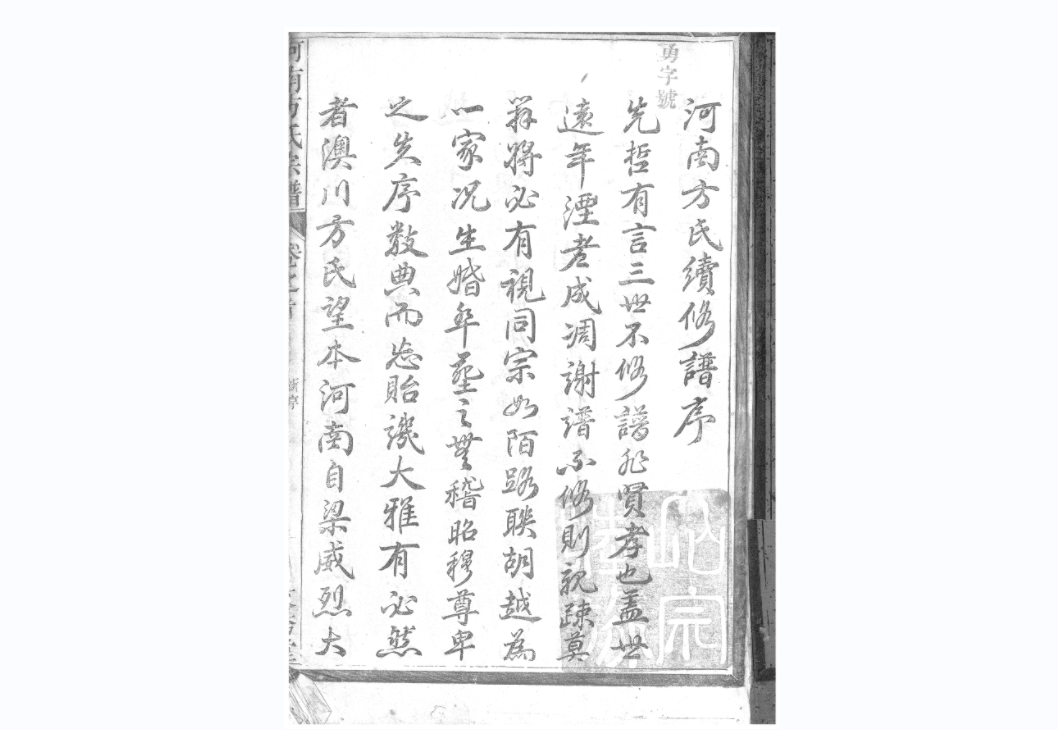 勇字號
河南方氏續修譜序
先哲有言三世不修譜非賢孝也蓋世
遠年湮老成凋謝譜不修則親疎莫
辨將必有視同宗如陌路聯胡越為
一家况生婚卒塟之無稽昭穆尊卑
之失序數典而忘貽譏大雅有必然
者澳川方氏望本河南自梁威烈大
河南方氏宗譜
卷之首
新序